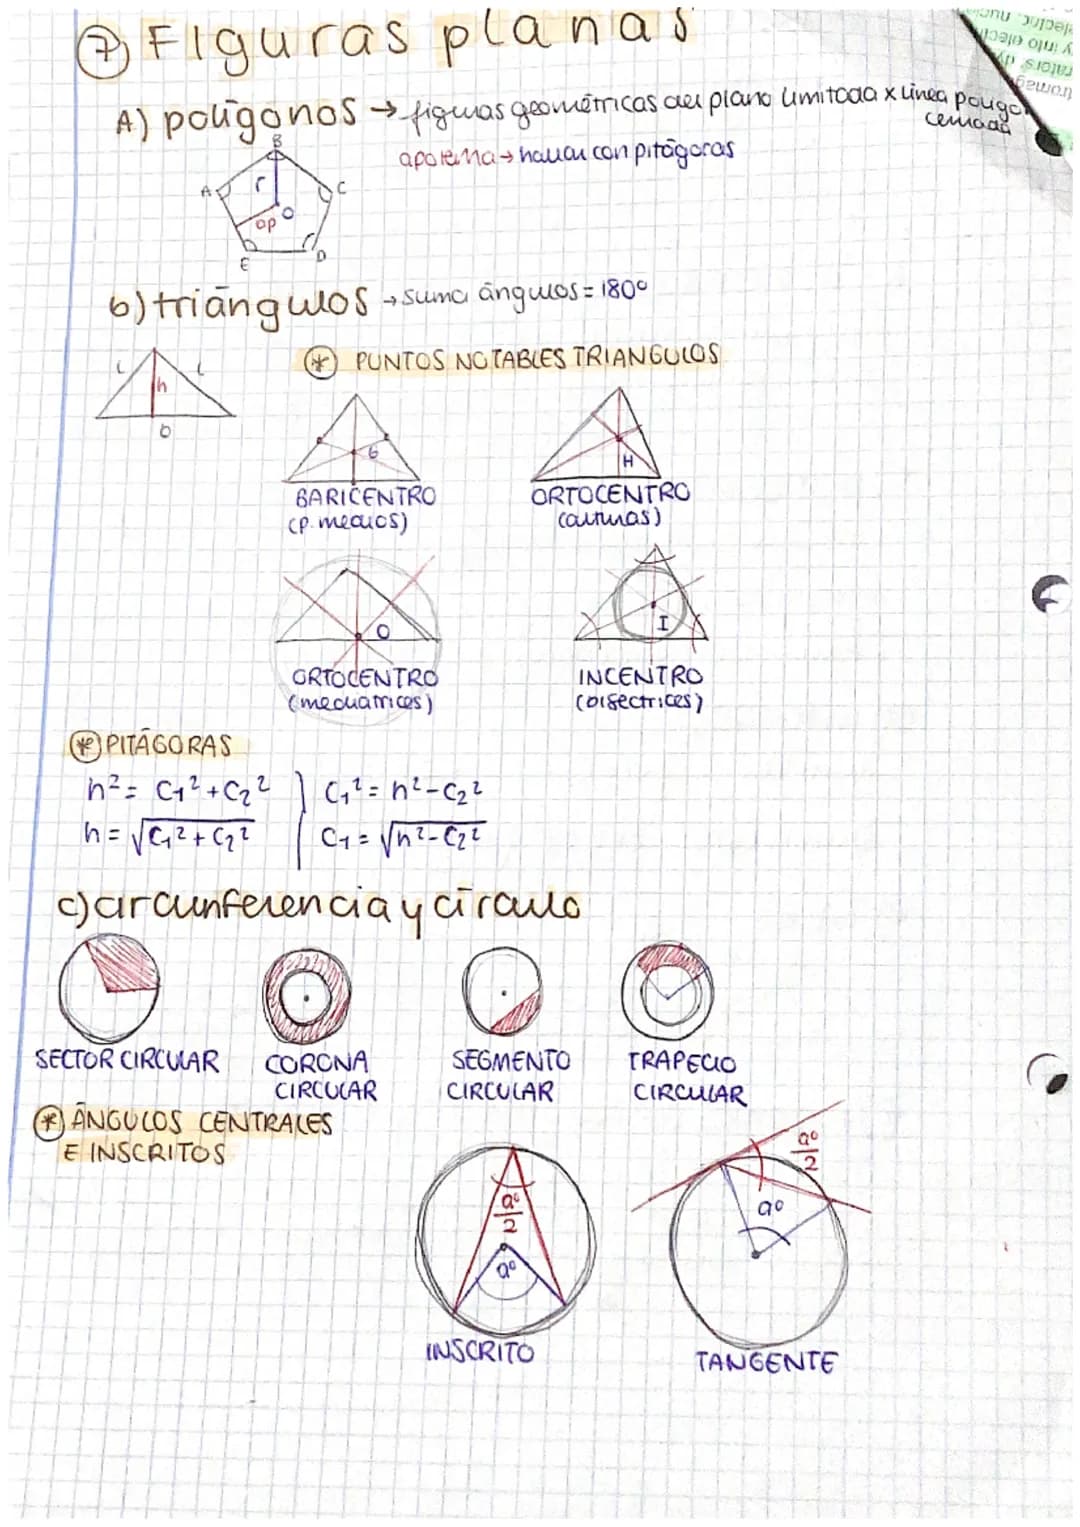 7 Figuras planas
A) polígonos → figuras geométricas del plano limitada x línea poligo
cerrada
apotema → hallar con pitágoras
B
A
r
C
O
ap
E
D
b) triángulos → suma ángulos = 180º
* PUNTOS NOTABLES TRIANGULOS
L L
h
b
G
H
BARICENTRO
(p. medios)
ORTOCENTRO
(alturas)
O
I
ORTOCENTRO
(mediatrices)
INCENTRO
(bisectrices)
* PITÁGORAS
h² = C₁² + C₂²
C₁² = h² - C₂²
h = √C₁² + C₂²
C₁ = √h² - C₂²
c) circunferencia y círculo
SECTOR CIRCULAR
CORONA
CIRCULAR
SEGMENTO
CIRCULAR
TRAPECIO
CIRCULAR
* ÁNGULOS CENTRALES
E INSCRITOS
aº/2
aº
aº/2
aº
INSCRITO
TANGENTE